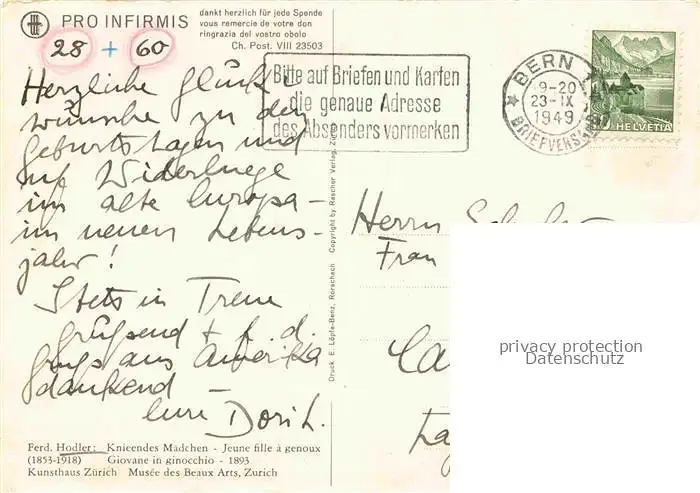 PRO INFIRMIS
dankt herzlich für jede Spende
vous remercie de votre don
ringrazia del vostro obolo
Ch. Post. VIII 23503
28 + 60
Herzliche Glück-
wünsche zu den
Geburtstagen und
auf Widerluege
im alte Europa -
im neuen Lebens-
jahr!
Stets in Treue
grüssend + h. d.
Gruss aus Amerika
dankend -
Eure Doris L.
Ferd. Hodler: Knieendes Mädchen - Jeune fille à genoux
(1853-1918) Giovane in ginocchio - 1893
Kunsthaus Zürich Musée des Beaux Arts, Zurich
Druck E. Löpfe-Benz, Rorschach Copyright by Rascher Verlag, Zürich
Bitte auf Briefen und Karten
die genaue Adresse
des Absenders vormerken
BERN
9-20
23-IX
1949
BRIEFVERSAND
HELVETIA
Herrn
Frau
privacy protection
Datenschutz